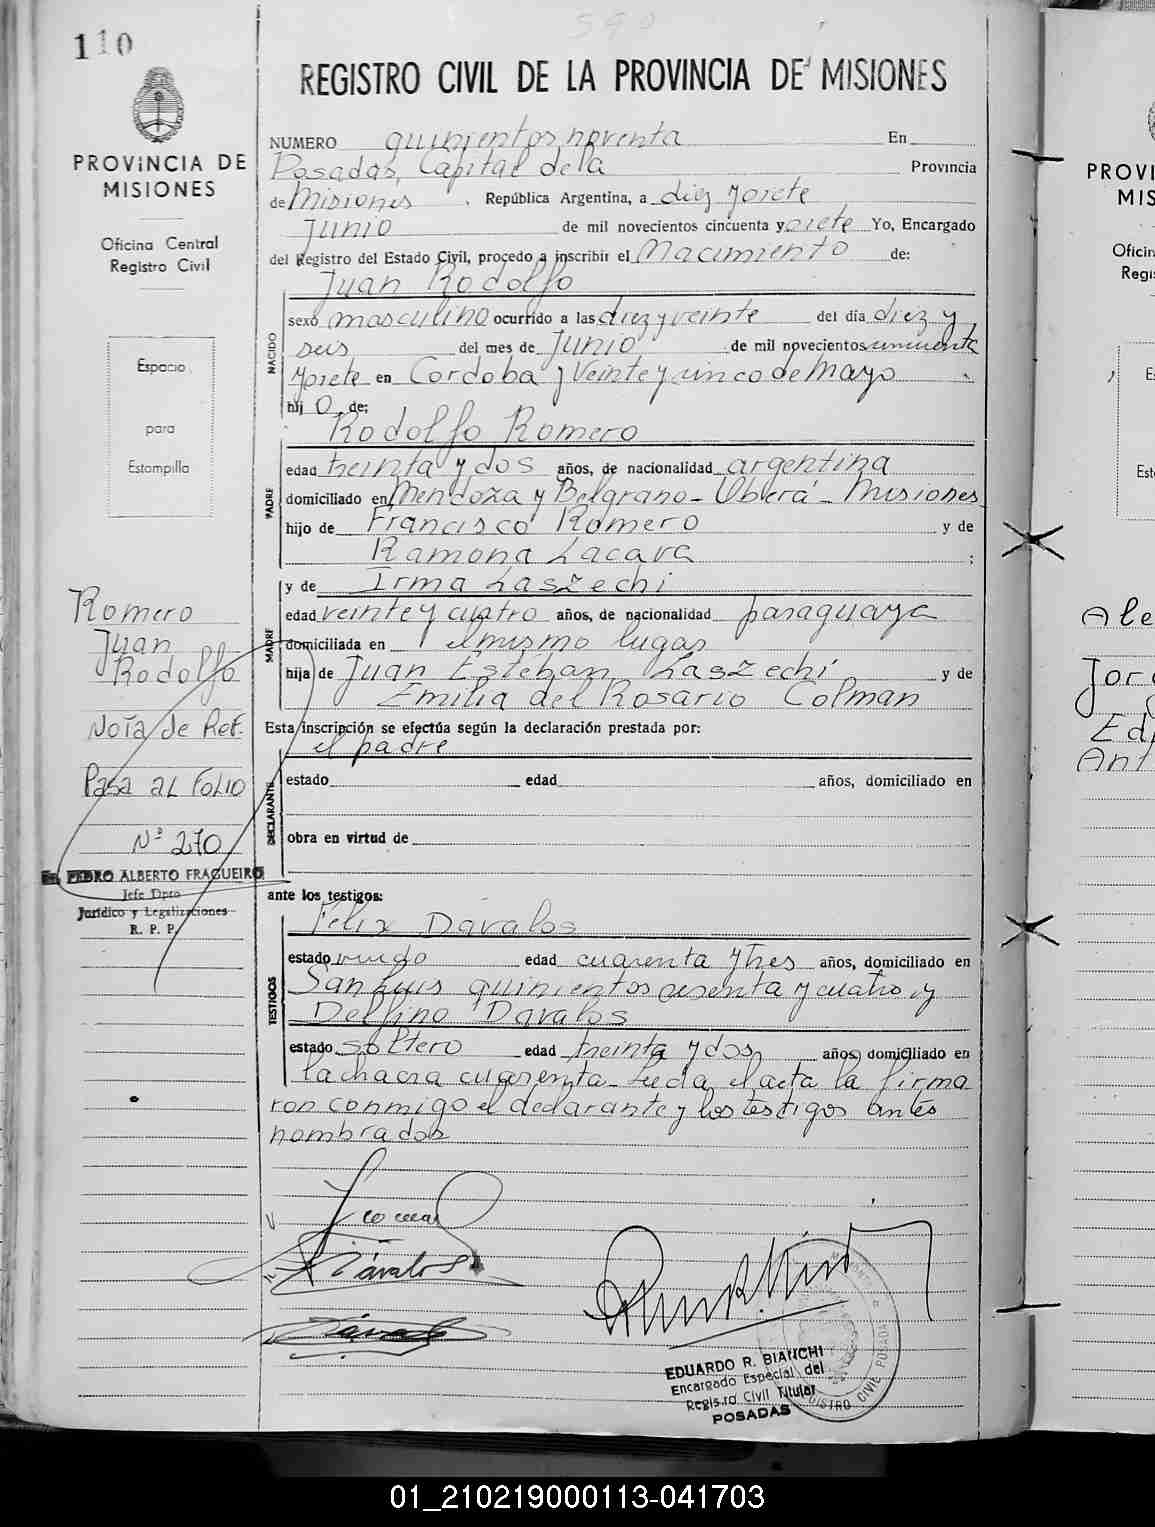 590
110
PROVINCIA DE
MISIONES
Oficina Central
Registro Civil
Espacio
para
Estampilla
Romero
Juan
Rodolfo
Nota de Ref.
Pasa al Folio
Nº 270
PEDRO ALBERTO FRAGUEIRO
Jefe Dpto
Jurídico y Legalizaciones
R. P. P.
REGISTRO CIVIL DE LA PROVINCIA DE MISIONES
NUMERO quinientos noventa En
Posadas, Capital de la Provincia
de Misiones, República Argentina, a diez y siete
Junio de mil novecientos cincuenta y siete Yo, Encargado
del Registro del Estado Civil, procedo a inscribir el Nacimiento de:
Juan Rodolfo
NACIDO
sexo masculino ocurrido a las diez y veinte del día diez y
seis del mes de Junio de mil novecientos cincuenta
y siete en Cordoba y Veinte y cinco de Mayo
hijo de:
Rodolfo Romero
PADRE
edad treinta y dos años, de nacionalidad argentina
domiciliado en Mendoza y Belgrano - Oberá - Misiones
hijo de Francisco Romero y de
Ramona Lacava ;
y de Irma Laszechi
MADRE
edad veinte y cuatro años, de nacionalidad paraguaya
domiciliada en el mismo lugar
hija de Juan Esteban Laszechi y de
Emilia del Rosario Colman
Esta inscripción se efectúa según la declaración prestada por:
el padre
DECLARANTE
estado edad años, domiciliado en
obra en virtud de
ante los testigos:
Felix Davalos
TESTIGOS
estado viudo edad cuarenta y tres años, domiciliado en
San Luis quinientos sesenta y cuatro y
Delfino Davalos
estado soltero edad treinta y dos años, domiciliado en
la chacra cuarenta - Leeda el acta la firma
ron conmigo el declarante y los testigos antes
nombrados
Dávalos
EDUARDO R. BIANCHI
Encargado Especial del
Registro Civil Titular
POSADAS
PROVI
MIS
Oficin
Regis
Es
Est
Ale
Jorg
Ed
Ant
01_210219000113-041703